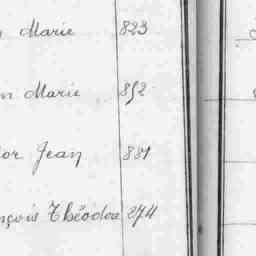 Marie 823
n Marie 852
or Jean 881
nçois Théodore 274